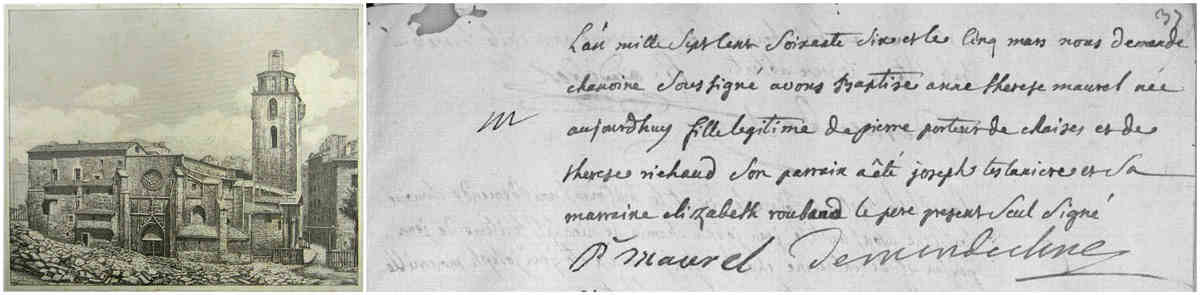 37
L'an mille sept cent soixante six et le cinq mars nous demande
chanoine soussigné avons Baptise anne therese maurel née
aujourdhuy fille legitime de pierre porteur de chaises et de
therese richaud son parrain a été joseph et sa
m
marraine elizabeth roubaud le pere present seul signé
Pre maurel